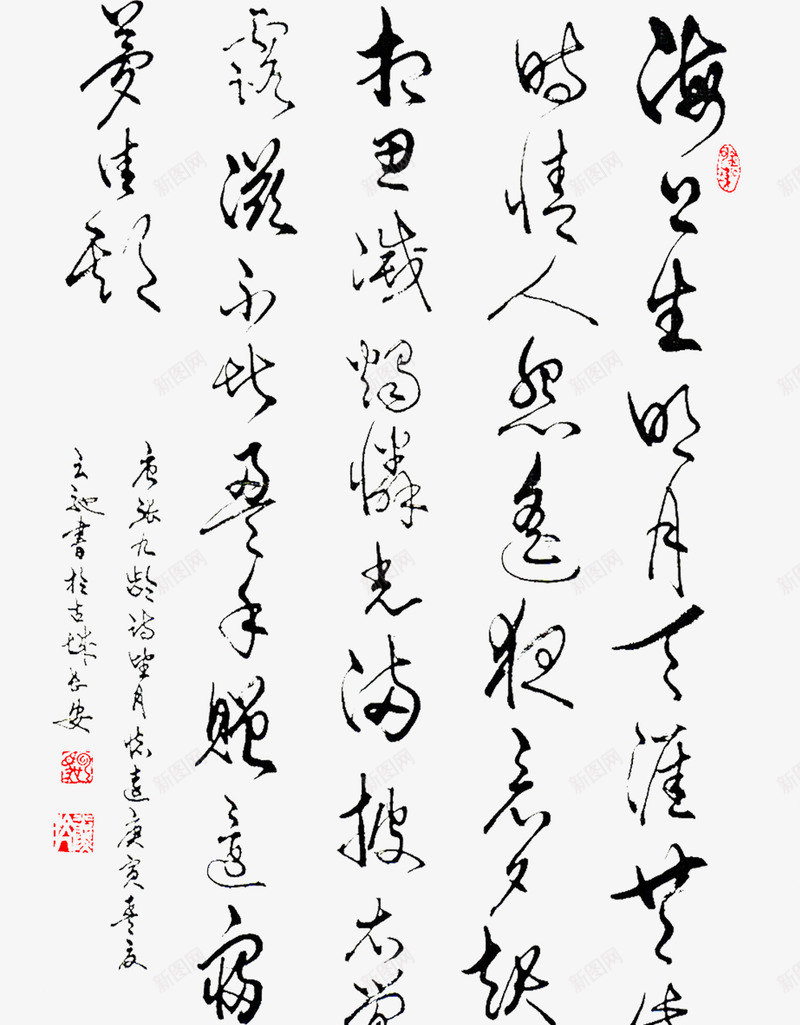 海上生明月天涯共此
時情人怨遙夜竟夕起
相思滅燭憐光滿披衣覺
露滋不堪盈手贈還寢
夢佳期
唐張九齡詩望月懷遠庚寅
書於古城長安
新图网